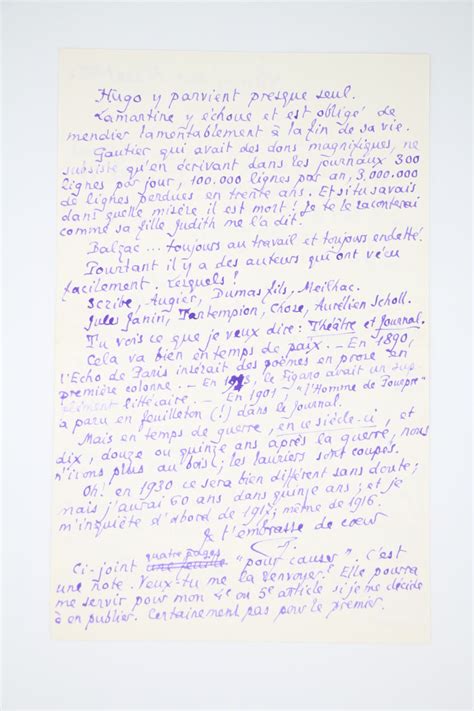 Hugo y parvient presque seul.
Lamartine y échoue et est obligé de
mendier lamentablement à la fin de sa vie.
Gautier qui avait des dons magnifiques, ne
subsiste qu'en écrivant dans les journaux 300
lignes par jour, 100.000 lignes par an, 3.000.000
de lignes perdues en trente ans. Et si tu savais
dans quelle misère il est mort ! Je te le raconterai
comme sa fille Judith me l'a dit.
Balzac ... toujours au travail et toujours endetté.
Pourtant il y a des auteurs qui ont vécu
facilement. Lesquels !
Scribe, Augier, Dumas fils, Meilhac.
Jules Janin, Tartempion, Chose, Aurélien Scholl.
Tu vois ce que je veux dire : Théâtre et Journal.
Cela va bien en temps de paix. — En 1890,
l'Echo de Paris insérait des poèmes en prose en
première colonne. — En, le Figaro avait un sup
plément littéraire. — En 1901, "l'Homme de Pourpre"
a paru en feuilleton (!) dans le Journal.
Mais en temps de guerre, en ce siècle-ci, et
dix, douze ou quinze ans après la guerre, nous
n'irons plus au bois ; les lauriers sont coupés.
Oh! en 1930 ce sera bien différent sans doute ;
mais j'aurai 60 ans dans quinze ans ; et je
m'inquiète d'abord de 1917 ; même de 1916.
& t'embrasse de cœur
Ci-joint quatre pages "pour causer". C'est
une note. Veux-tu me la renvoyer? Elle pourra
me servir pour mon 4e ou 5e article si je me décide
à en publier. Certainement pas pour le premier.